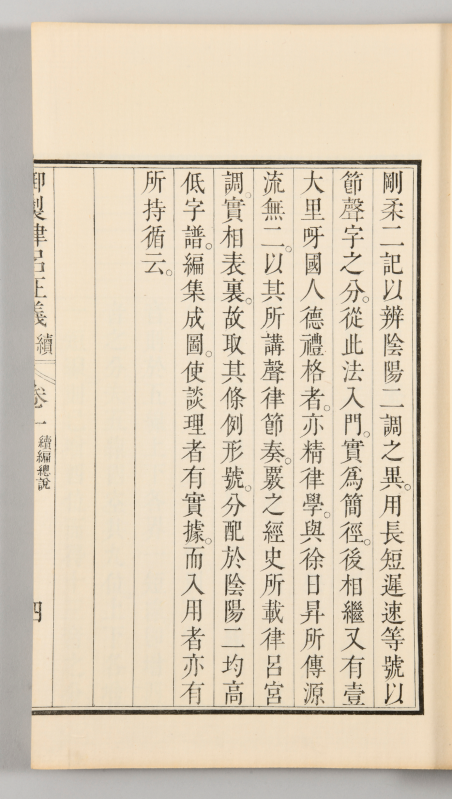 剛柔二記以辨陰陽二調之異。用長短遲速等號以
節聲字之分。從此法入門。實為簡徑。後相繼又有壹
大里呀國人德禮格者。亦精律學。與徐日昇所傳源
流無二。以其所講聲律節奏。覈之經史所載律呂宮
調。實相表裏。故取其條例形號。分配於陰陽二均高
低字譜。編集成圖。使談理者有實據。而入用者亦有
所持循云。
御製律呂正義 續 卷一 續編總說 四